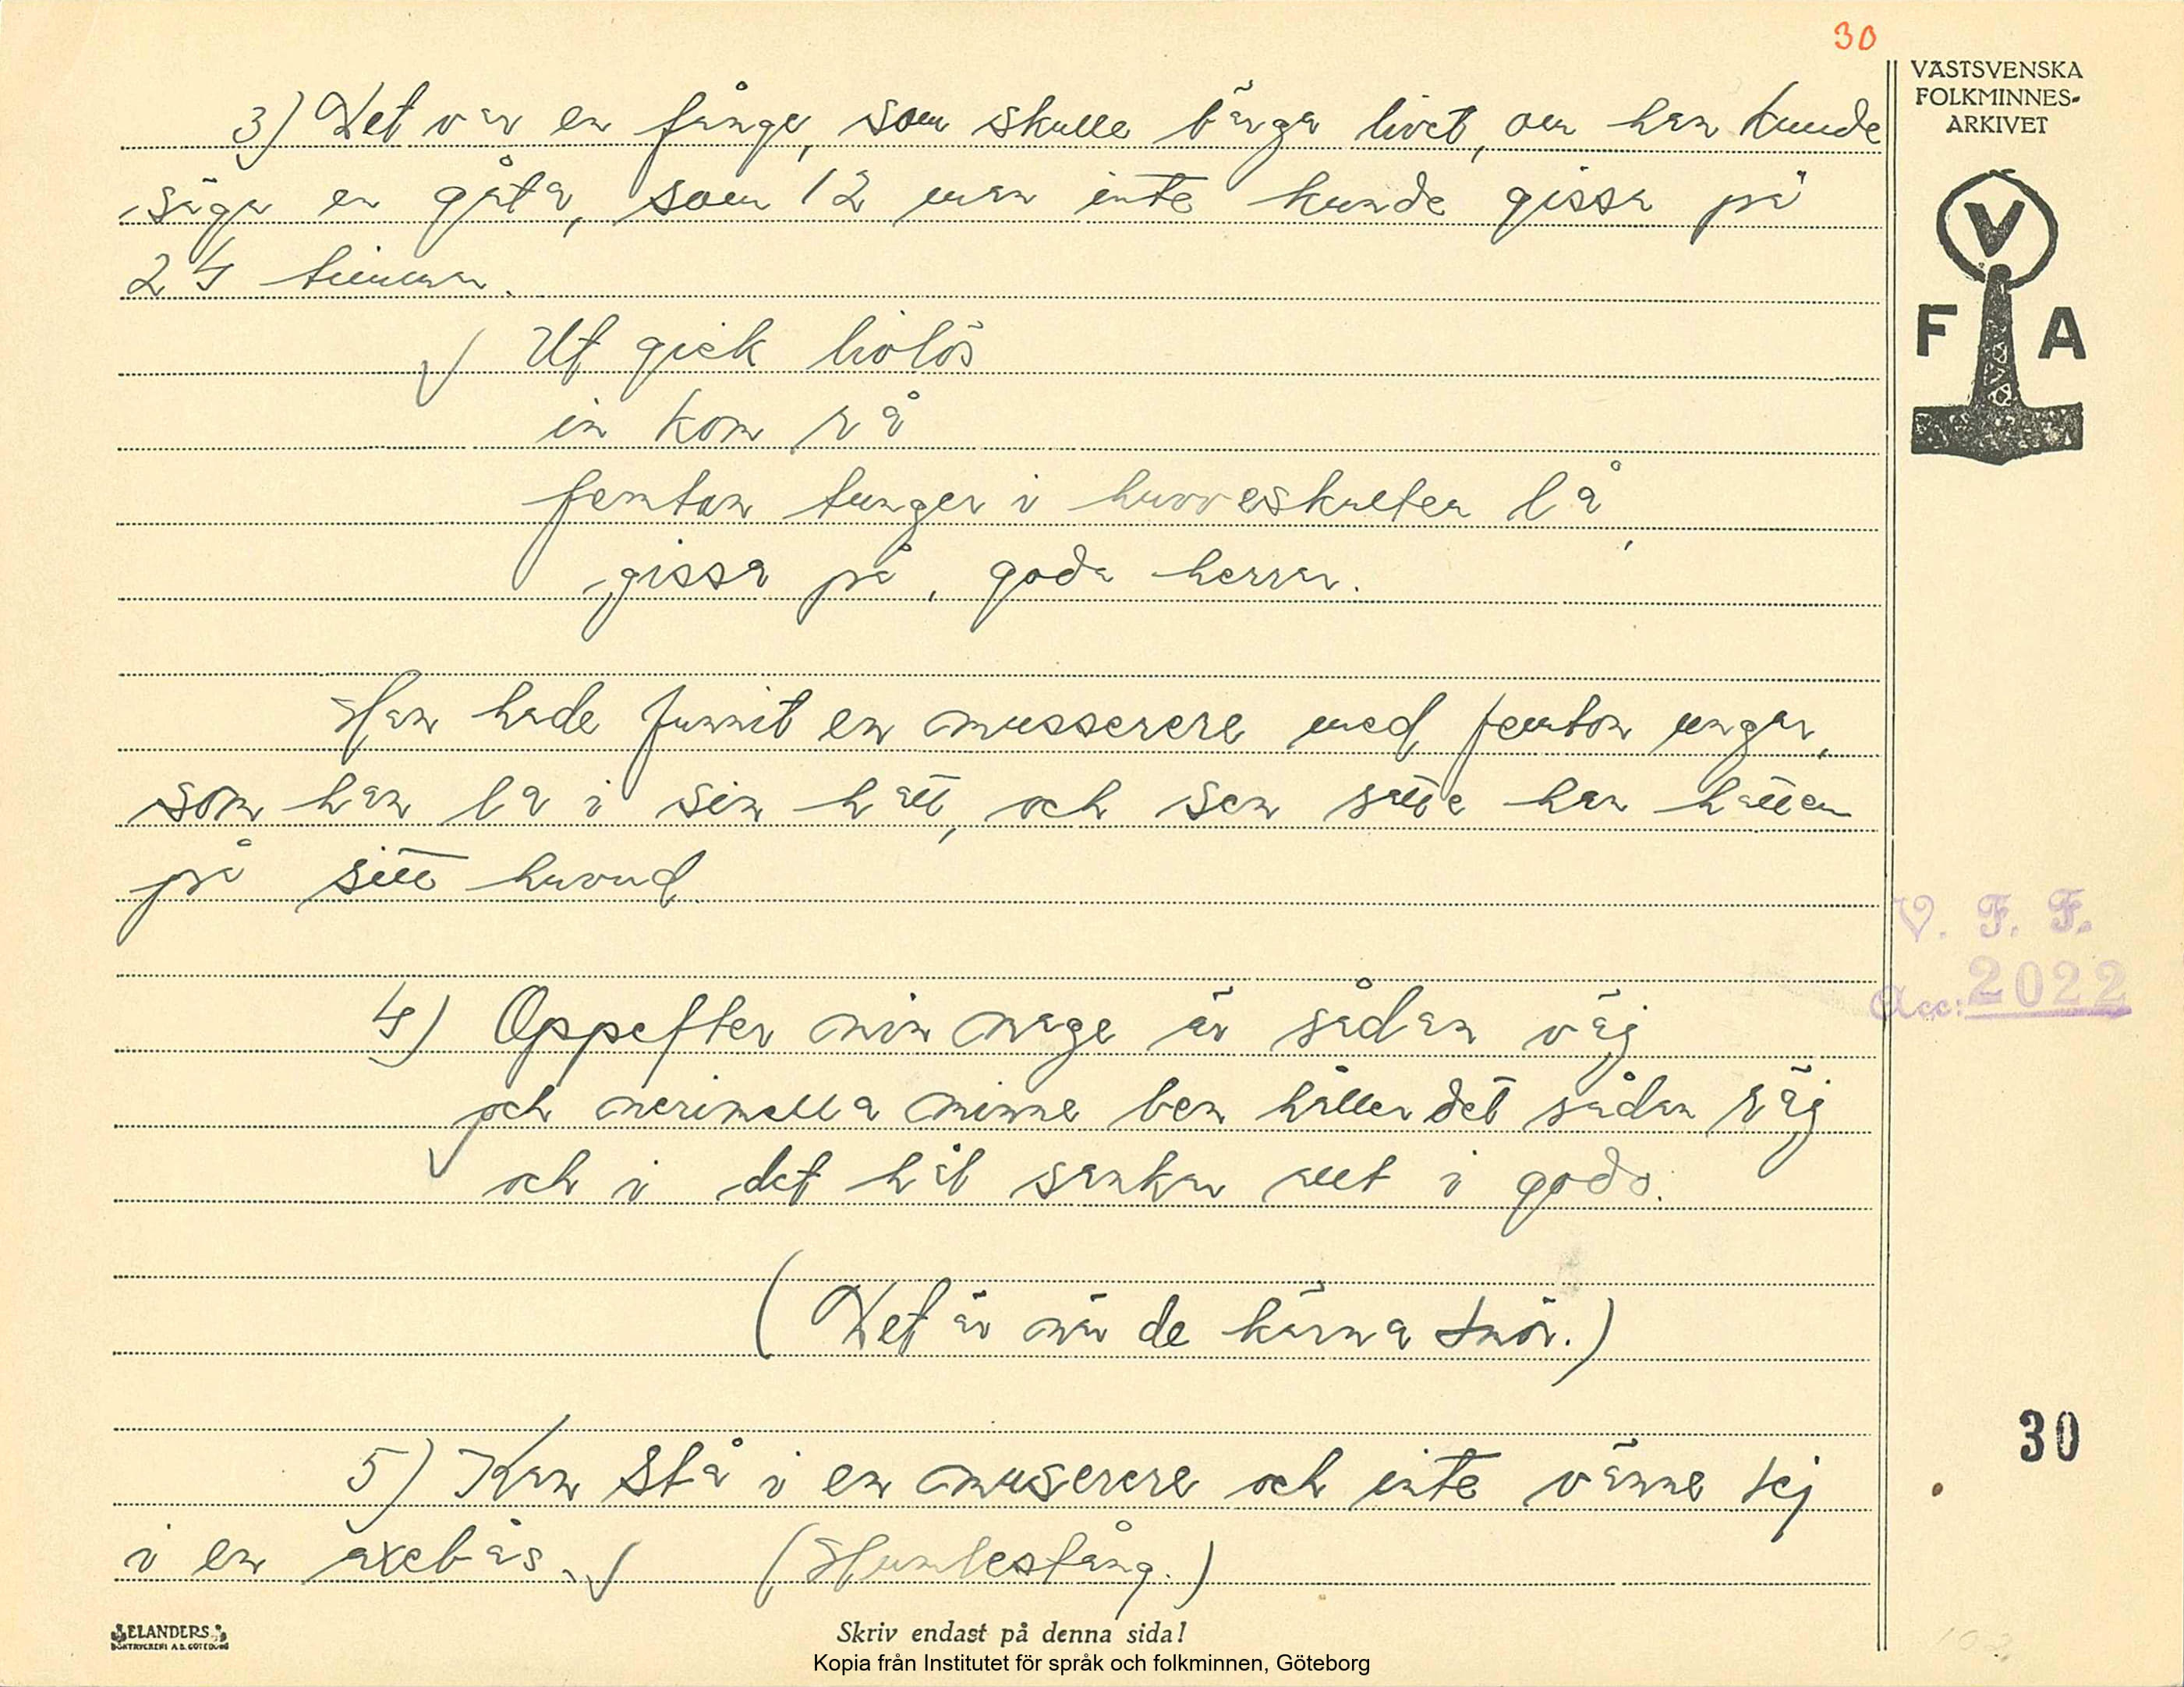 30
VÄSTSVENSKA
FOLKMINNES-
ARKIVET
V
F A
3) Det var en fånge, som skulle bärga livet, om han kunde
säga en gåta, som 12 man inte kunde gissa på
24 timmar.
Ut gick livlös
in kom rå
femton tunger i huvveskulten lå,
gissa på, goda herrar.
Han hade funnit en musserere med femton ungar,
som han la i sin hatt, och sen satte han hatten
på sitt huvud.
4) Oppefter min mage är sådan väj
och merimella minne ben håller det sådan räj
och i det hål sankar allt i gods.
(Det är när de kärna smör.)
5) Kan stå i en muserere och inte vänne sej
i en axebås. (Humlestång.)
V. F. F.
Acc: 2022
30
ELANDERS
BOKTRYCKERI A.B. GÖTEBORG
Skriv endast på denna sida!
Kopia från Institutet för språk och folkminnen, Göteborg